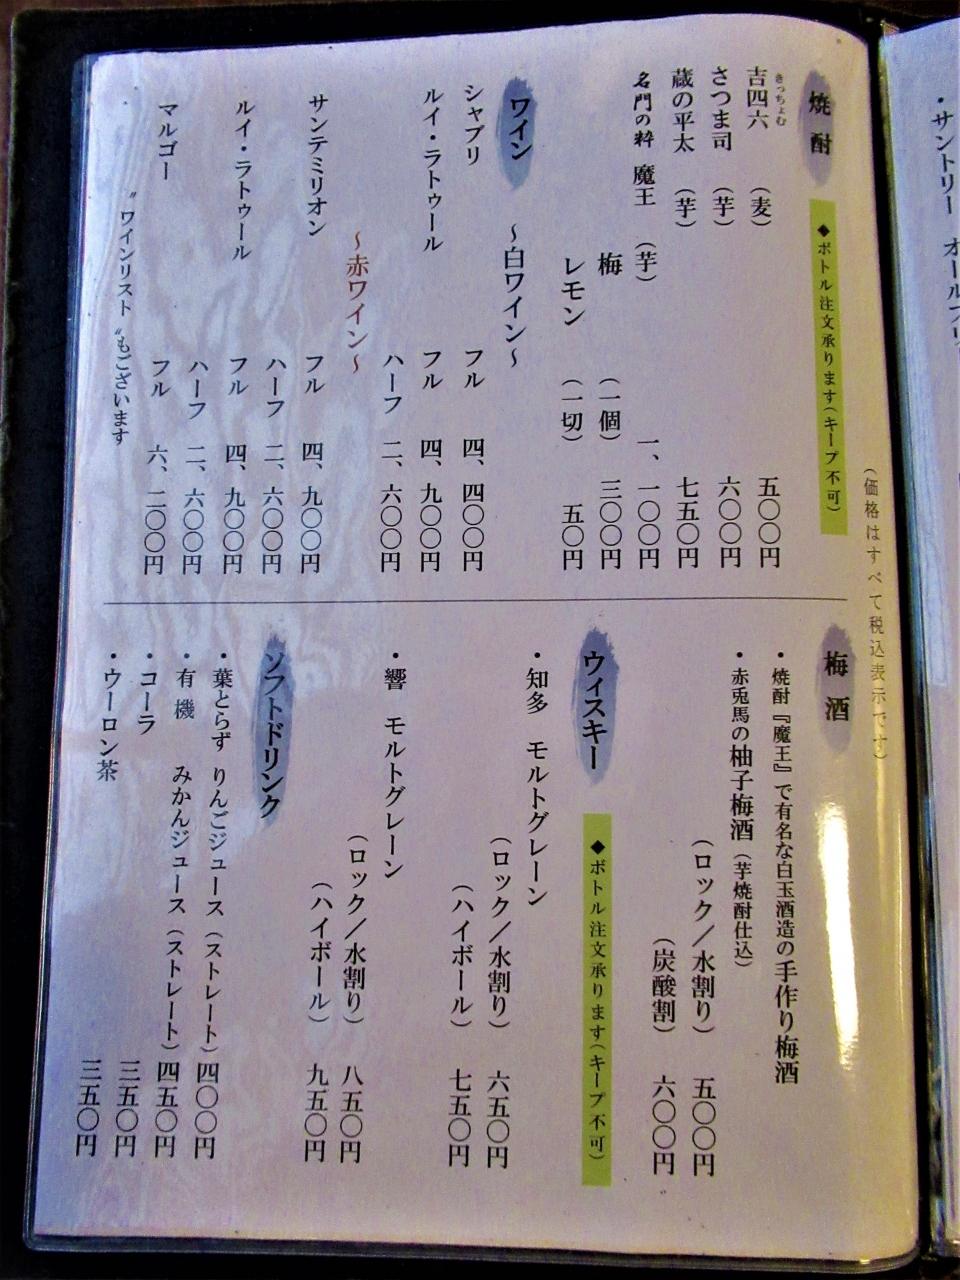 (価格はすべて税込表示です)
焼酎
◆ボトル注文承ります(キープ不可)
きっちょむ
吉四六 (麦) 五〇〇円
さつま司 (芋) 六〇〇円
蔵の平太 (芋) 七五〇円
名門の粋 魔王 (芋) 一、一〇〇円
梅 (一個) 三〇〇円
レモン (一切) 五〇円
ワイン
~白ワイン~
シャブリ フル 四、四〇〇円
ルイ・ラトゥール フル 四、九〇〇円
ハーフ 二、六〇〇円
~赤ワイン~
サンテミリオン フル 四、九〇〇円
ハーフ 二、六〇〇円
ルイ・ラトゥール フル 四、九〇〇円
ハーフ 二、六〇〇円
マルゴー フル 六、二〇〇円
〝ワインリスト〟もございます
梅酒
・焼酎『魔王』で有名な白玉酒造の手作り梅酒
・赤兎馬の柚子梅酒(芋焼酎仕込)
(ロック/水割り) 五〇〇円
(炭酸割) 六〇〇円
ウィスキー
◆ボトル注文承ります(キープ不可)
・知多 モルトグレーン
(ロック/水割り) 六五〇円
(ハイボール) 七五〇円
・響 モルトグレーン
(ロック/水割り) 八五〇円
(ハイボール) 九五〇円
ソフトドリンク
・葉とらず りんごジュース(ストレート) 四〇〇円
・有機 みかんジュース(ストレート) 四五〇円
・コーラ 三五〇円
・ウーロン茶 三五〇円
・サントリー